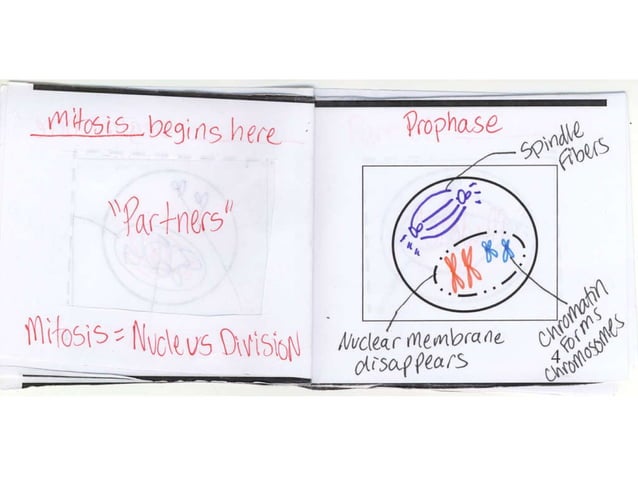 Mitosis begins here
"Partners"
Mitosis = Nucleus Division
Prophase
Spindle
Fibers
Nuclear membrane
disappears
Chromatin
& forms
chromosomes